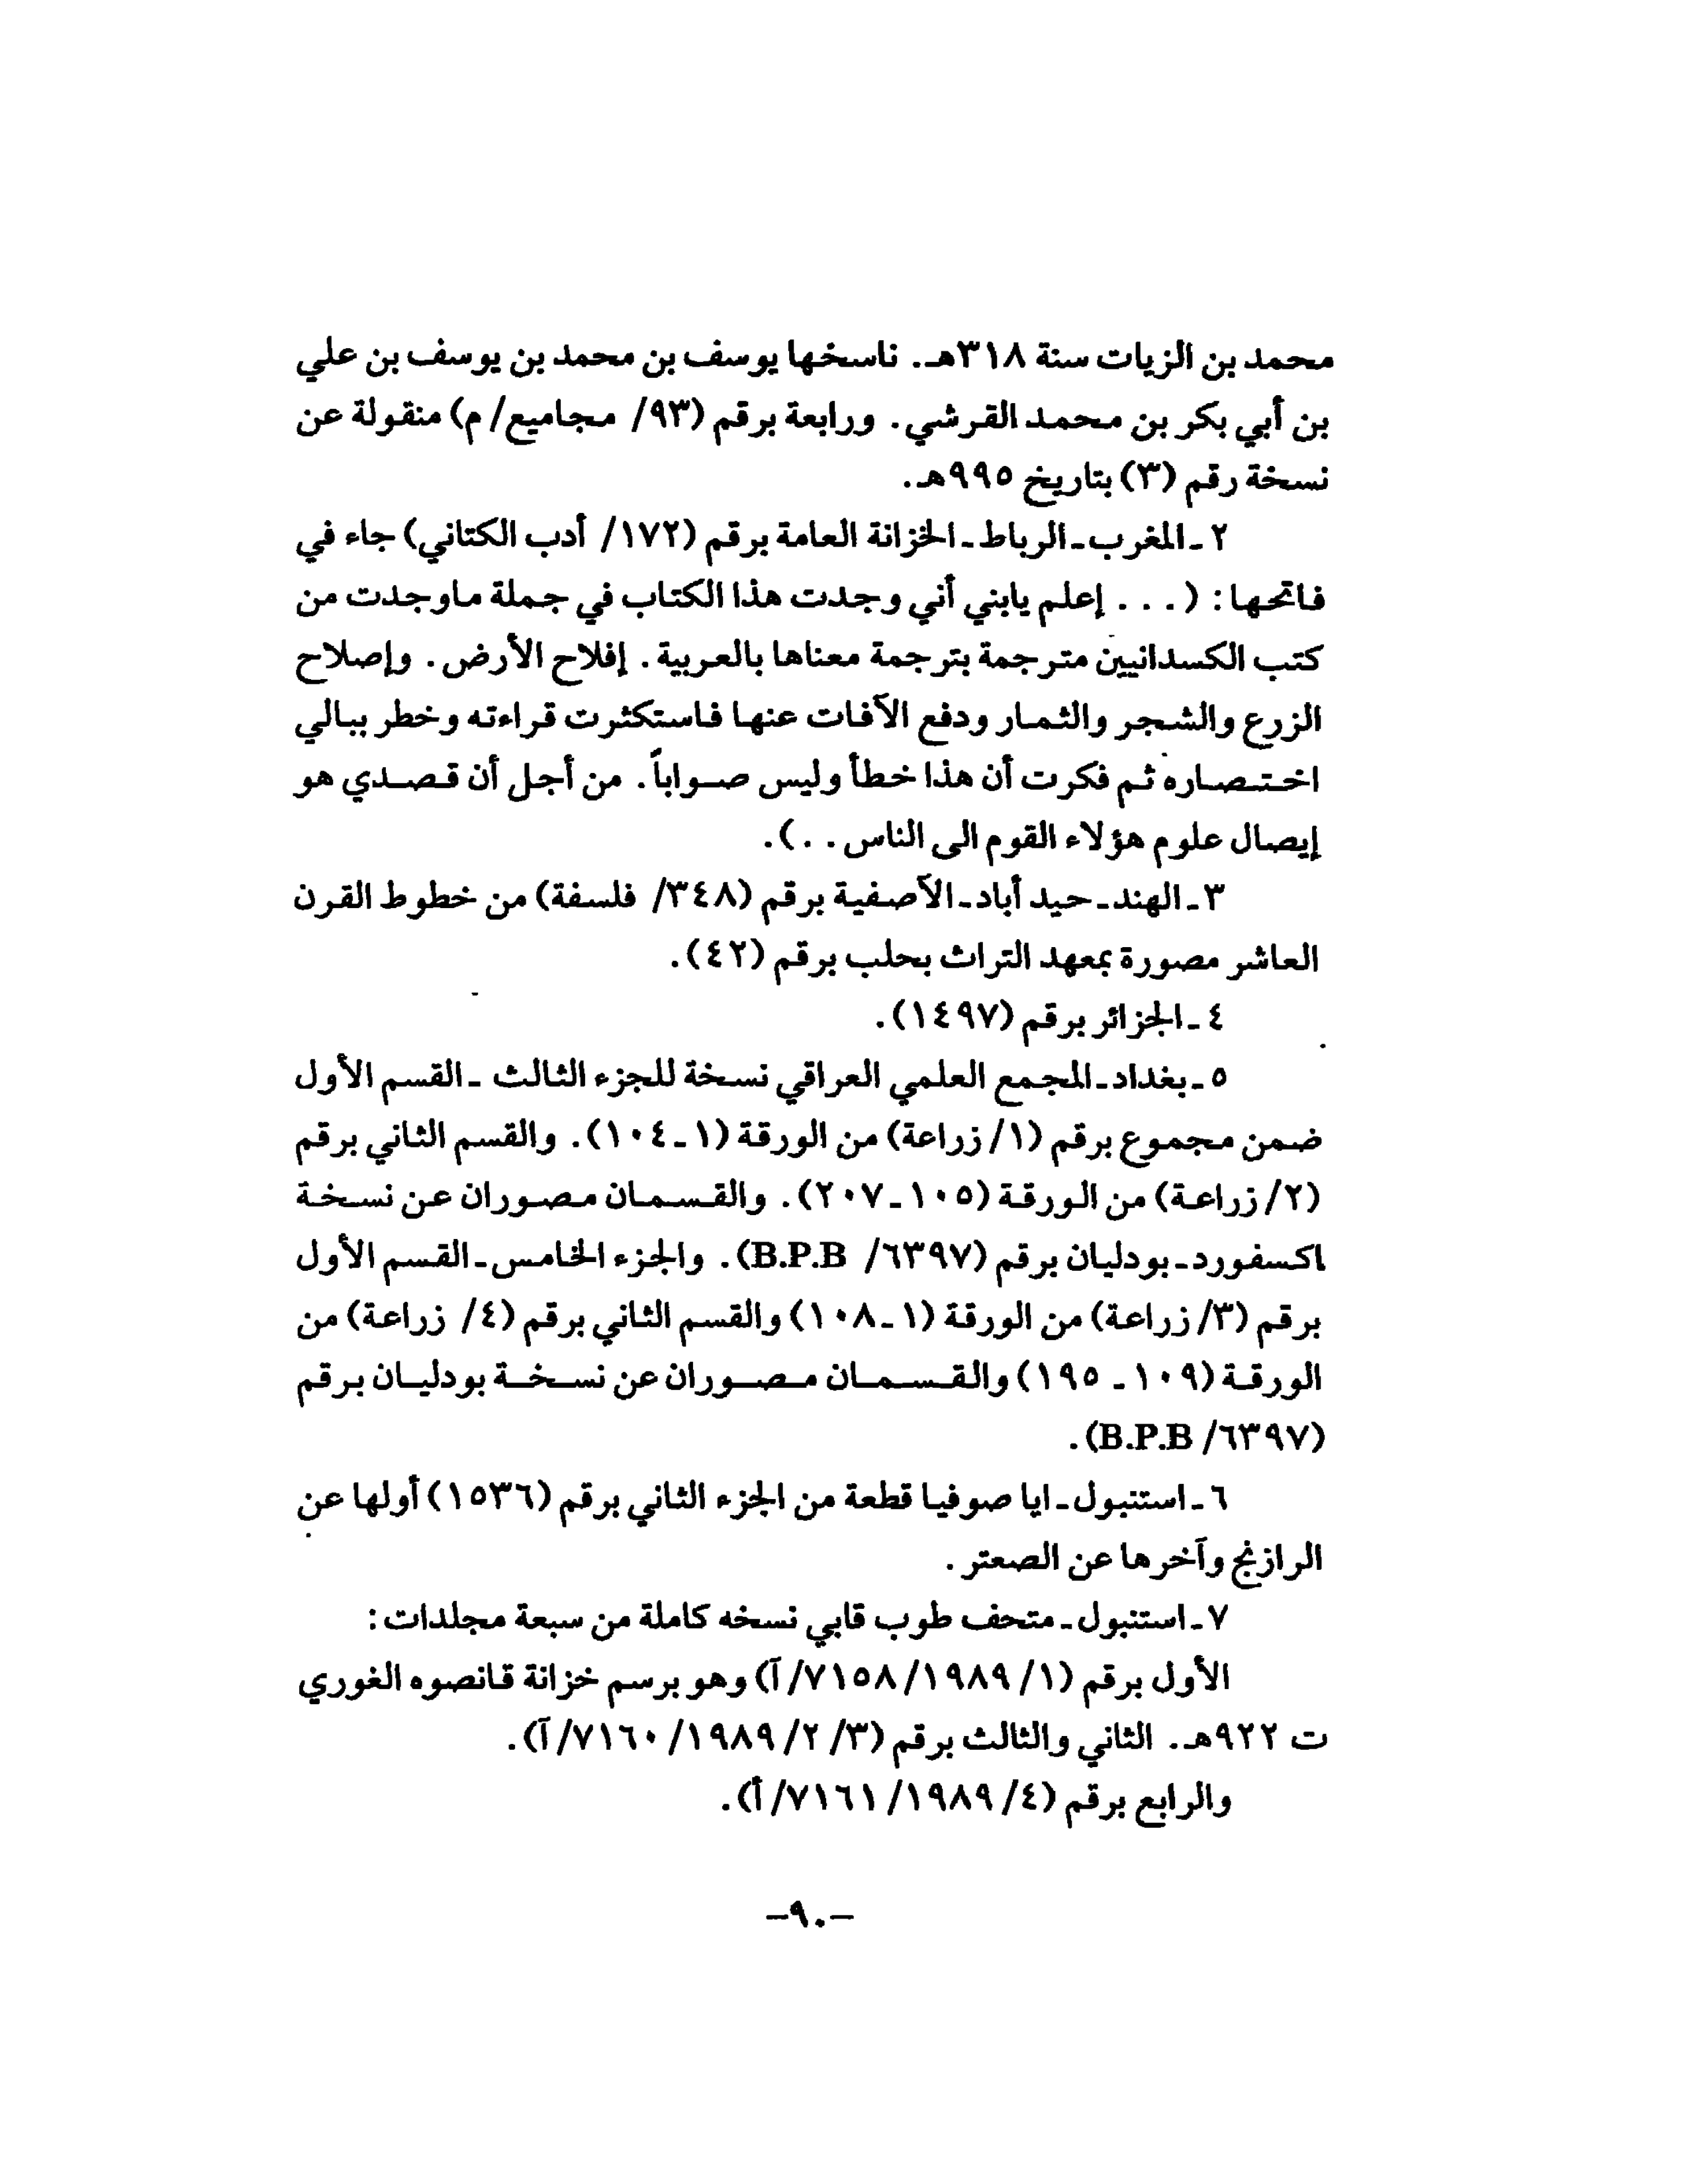 محمد بن الزيات سنة ٣١٨هـ. ناسخها يوسف بن محمد بن يوسف بن علي
بن أبي بكر بن محمد القرشي. ورابعة برقم (٩٣/ مجاميع/ م) منقولة عن
نسخة رقم (٣) بتاريخ ٩٩٥هـ.
٢ ـ المغرب ـ الرباط ـ الخزانة العامة برقم (١٧٢/ أدب الكتاني) جاء في
فاتحها: (... إعلم يابني أني وجدت هذا الكتاب في جملة ماوجدت من
كتب الكسدانيين مترجمة بترجمة معناها بالعربية. إفلاح الأرض. وإصلاح
الزرع والشجر والثمار ودفع الآفات عنها فاستكثرت قراءته وخطر ببالي
اختصاره ثم فكرت أن هذا خطأ وليس صواباً. من أجل أن قصدي هو
إيصال علوم هؤلاء القوم الى الناس ..).
٣ ـ الهند ـ حيد أباد ـ الآصفية برقم (٣٤٨/ فلسفة) من خطوط القرن
العاشر مصورة بمعهد التراث بحلب برقم (٤٢).
٤ ـ الجزائر برقم (١٤٩٧).
٥ ـ بغداد ـ المجمع العلمي العراقي نسخة للجزء الثالث ـ القسم الأول
ضمن مجموع برقم (١/ زراعة) من الورقة (١ ـ ١٠٤). والقسم الثاني برقم
(٢/ زراعة) من الورقة (١٠٥ ـ ٢٠٧). والقسمان مصوران عن نسخة
اكسفورد ـ بودليان برقم (٦٣٩٧/ B.P.B). والجزء الخامس ـ القسم الأول
برقم (٣/ زراعة) من الورقة (١ ـ ١٠٨) والقسم الثاني برقم (٤/ زراعة) من
الورقة (١٠٩ ـ ١٩٥) والقسمان مصوران عن نسخة بودليان برقم
(٦٣٩٧/ B.P.B).
٦ ـ استنبول ـ ايا صوفيا قطعة من الجزء الثاني برقم (١٥٣٦) أولها عن
الرازنج وآخرها عن الصعتر.
٧ ـ استنبول ـ متحف طوب قابي نسخه كاملة من سبعة مجلدات:
الأول برقم (١/ ١٩٨٩/ ٧١٥٨/ آ) وهو برسم خزانة قانصوه الغوري
ت ٩٢٢هـ. الثاني والثالث برقم (٣/ ٢/ ١٩٨٩/ ٧١٦٠/ آ).
والرابع برقم (٤/ ١٩٨٩/ ٧١٦١/ أ).
-٩٠-